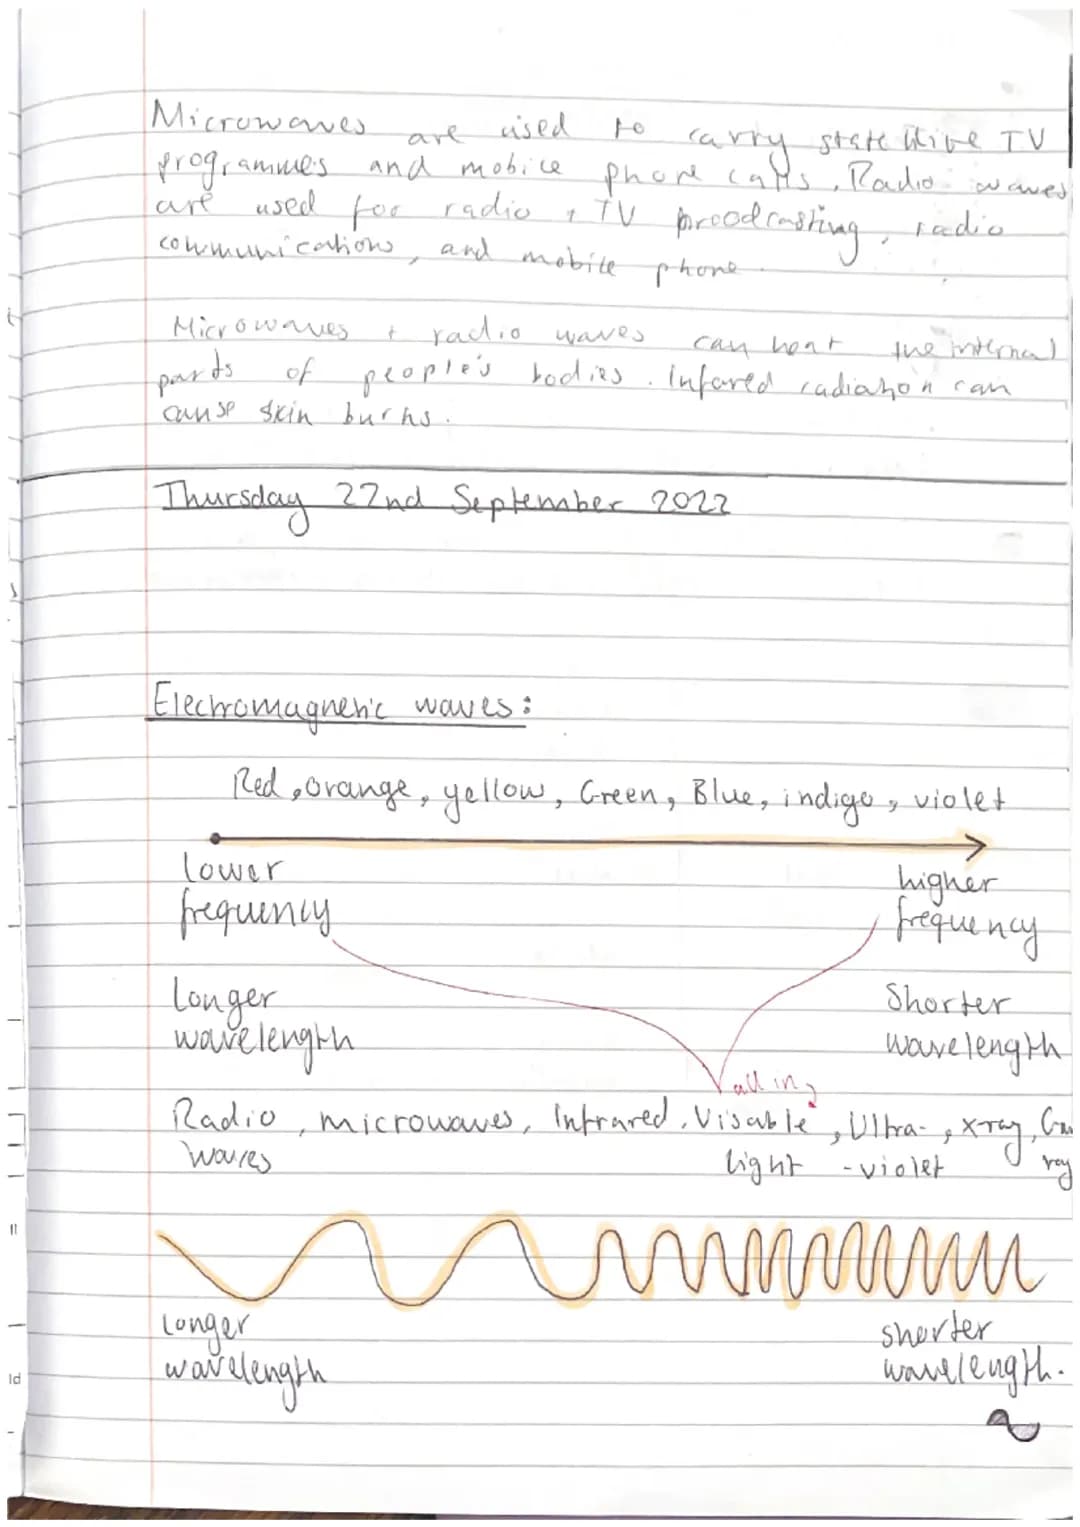 Microwaves are used to carry statellive TV
programmes and mobile phone calls. Radio waves
are used for radio + TV broadcasting, radio
communications, and mobile phone.
Microwaves + radio waves can heat the internal
parts of people's bodies. Infared radiation can
cause skin burns.
Thursday 22nd September 2022
Electromagnetic waves:
Red, orange, yellow, Green, Blue, indigo, violet
lower higher
frequency frequency
Longer Shorter
wavelength wavelength
all in
Radio, microwaves, Infrared, Visable, Ultra-, x-ray,
waves light -violet ray
Longer shorter
wavelength wavelength.